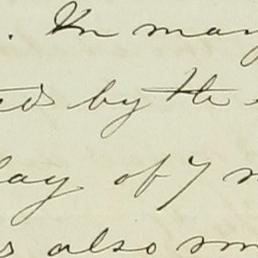 . In many
by the
lay of 7
s also